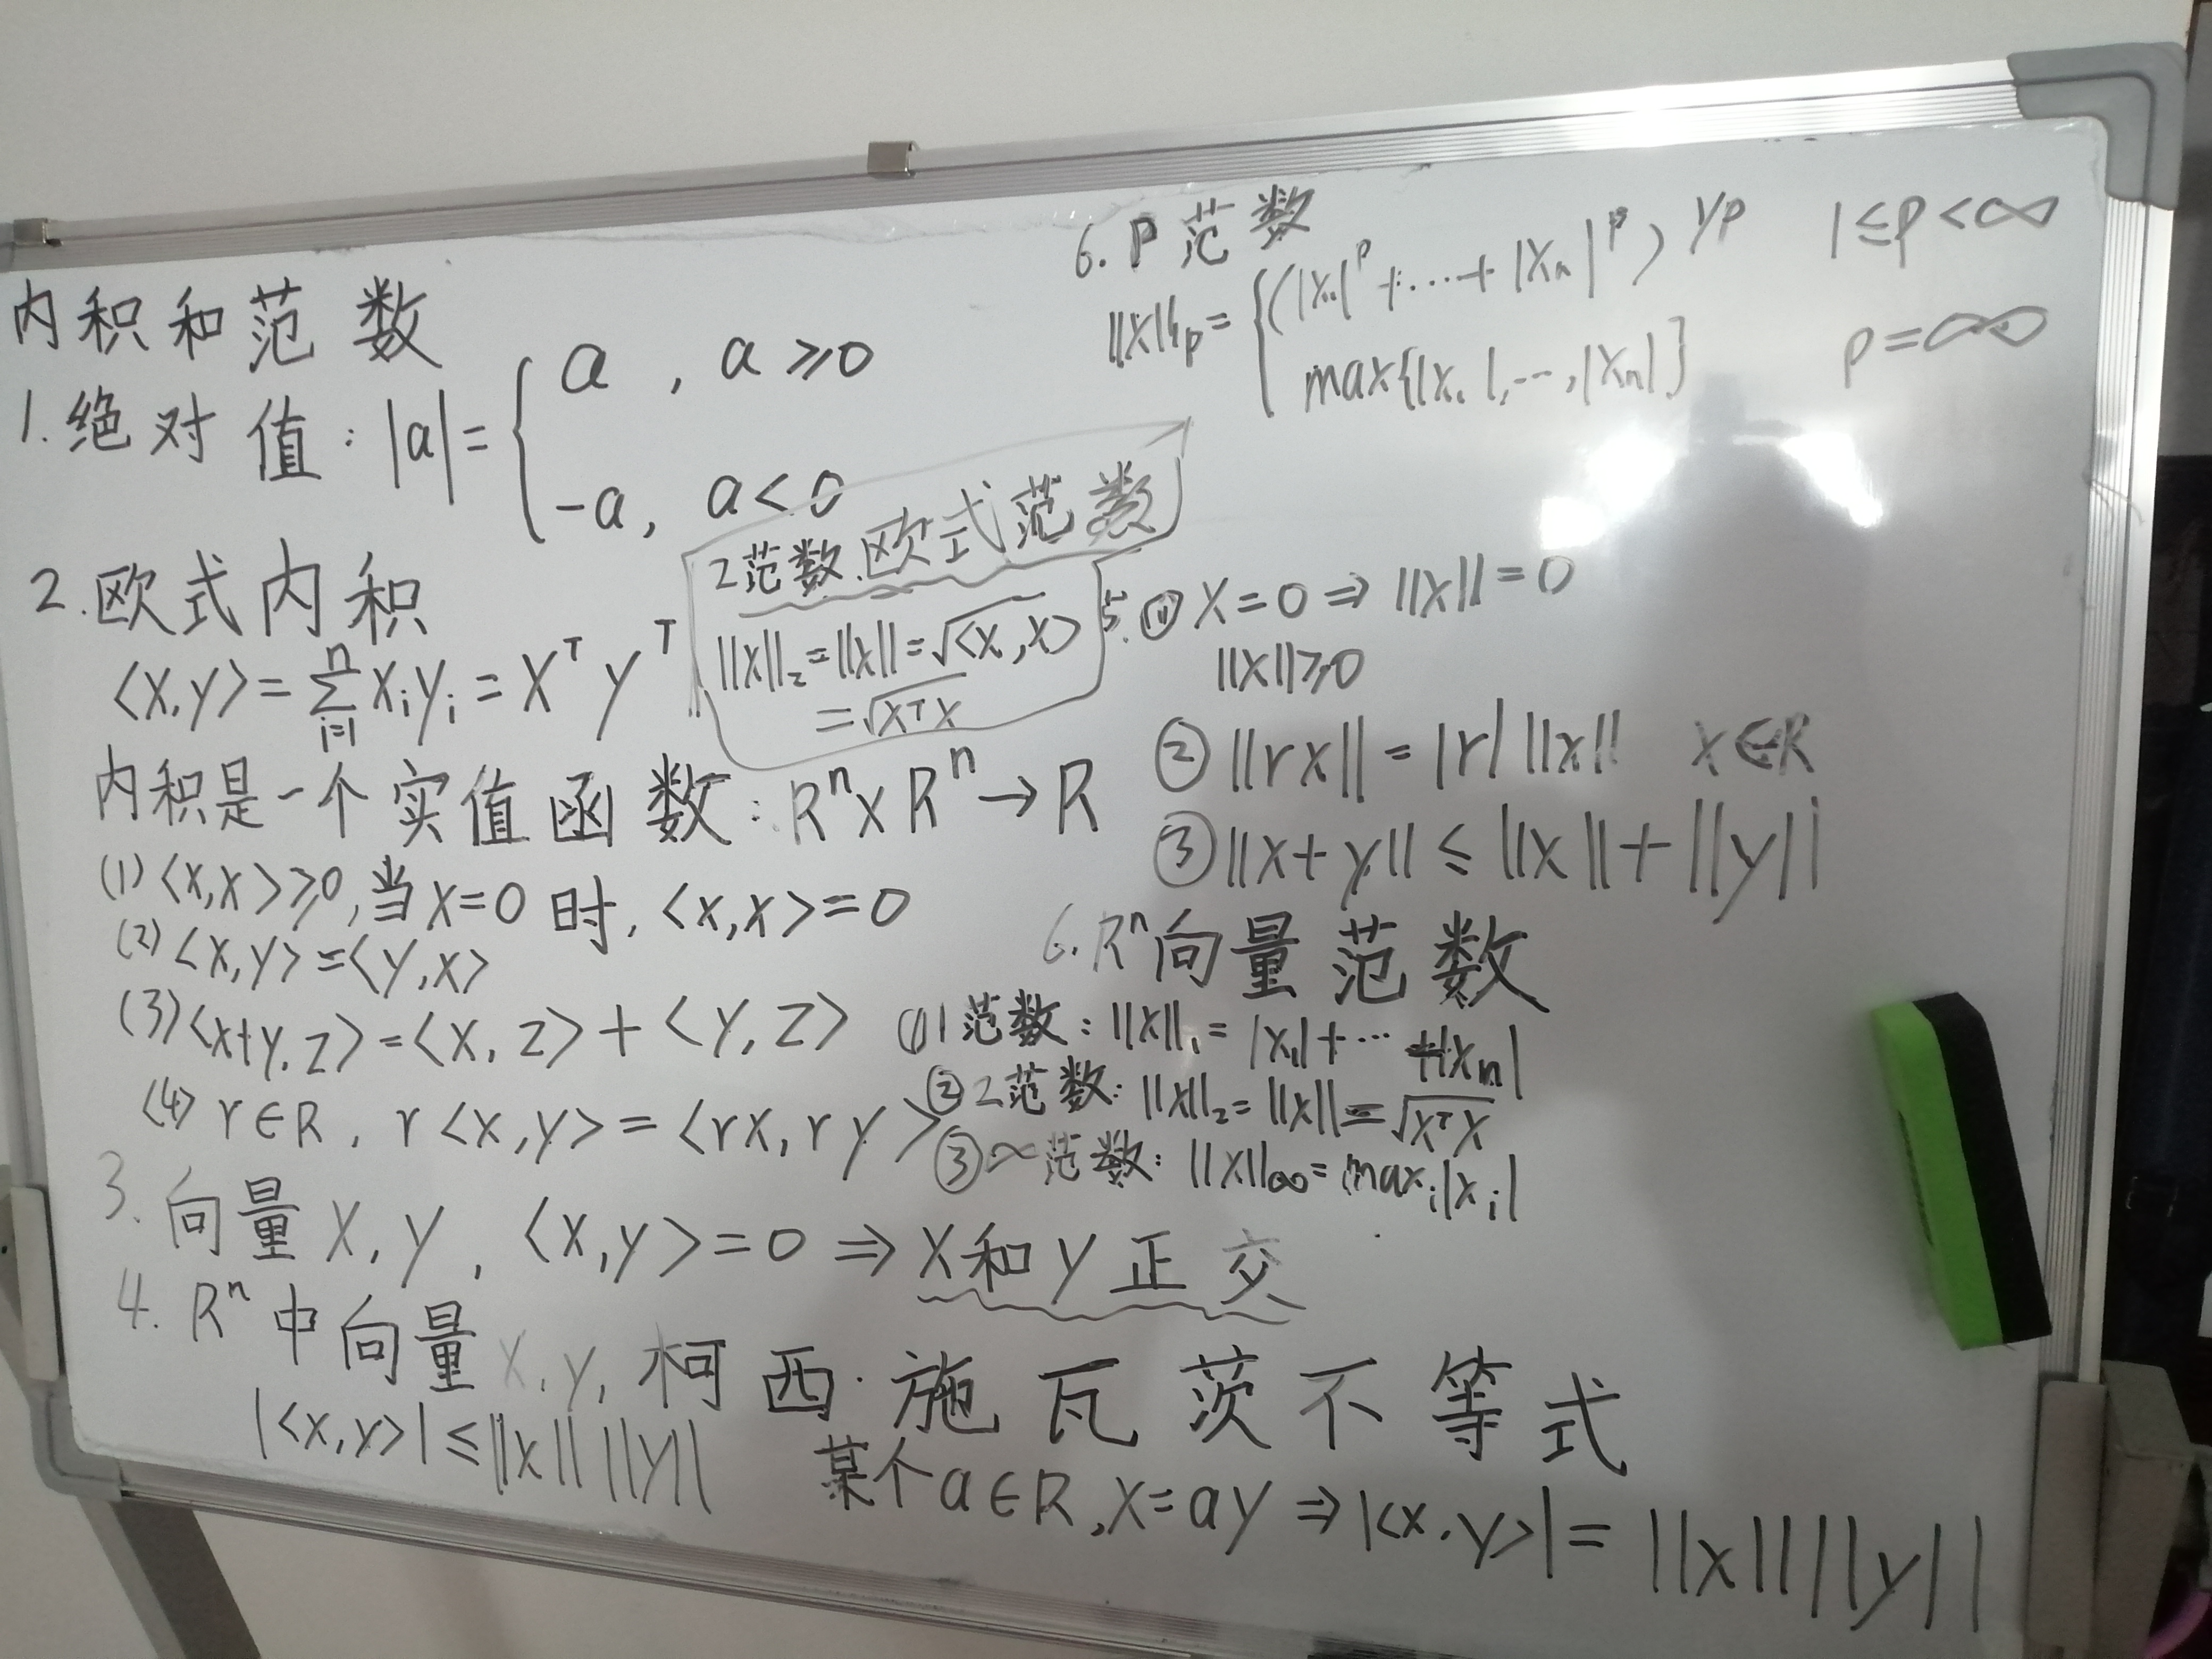 内积和范数
1. 绝对值: |a| = { a , a ≥ 0
-a, a < 0
2. 欧式内积
<x,y> = Σ_{i=1}^{n} x_i y_i = X^T y^T
内积是一个实值函数: R^n × R^n → R
(1) <x,x> ≥ 0, 当 x=0 时, <x,x> = 0
(2) <x,y> = <y,x>
(3) <x+y, z> = <x, z> + <y, z>
(4) r∈R, r<x,y> = <rx, ry>
3. 向量 x, y, <x,y> = 0 ⇒ x和y正交
4. R^n 中向量 x, y, 柯西·施瓦茨不等式
|<x,y>| ≤ ||x|| ||y||
某个 a∈R, x=ay ⇒ |<x,y>| = ||x|| ||y||
2范数.欧式范数
||x||_2 = ||x|| = √<x,x>
= √x^T x
5. ① x=0 ⇒ ||x|| = 0
||x|| ≥ 0
② ||rx|| = |r| ||x|| x∈R
③ ||x+y|| ≤ ||x|| + ||y||
6. R^n 向量范数
① 1范数: ||x||_1 = |x_1| + ··· + |x_n|
② 2范数: ||x||_2 = ||x|| = √x^T x
③ ∞范数: ||x||_∞ = max_i |x_i|
6. P范数
||x||_p = { (|x_1|^p + ··· + |x_n|^p)^{1/p} 1 ≤ p < ∞
max{|x_1|, ···, |x_n|} p = ∞